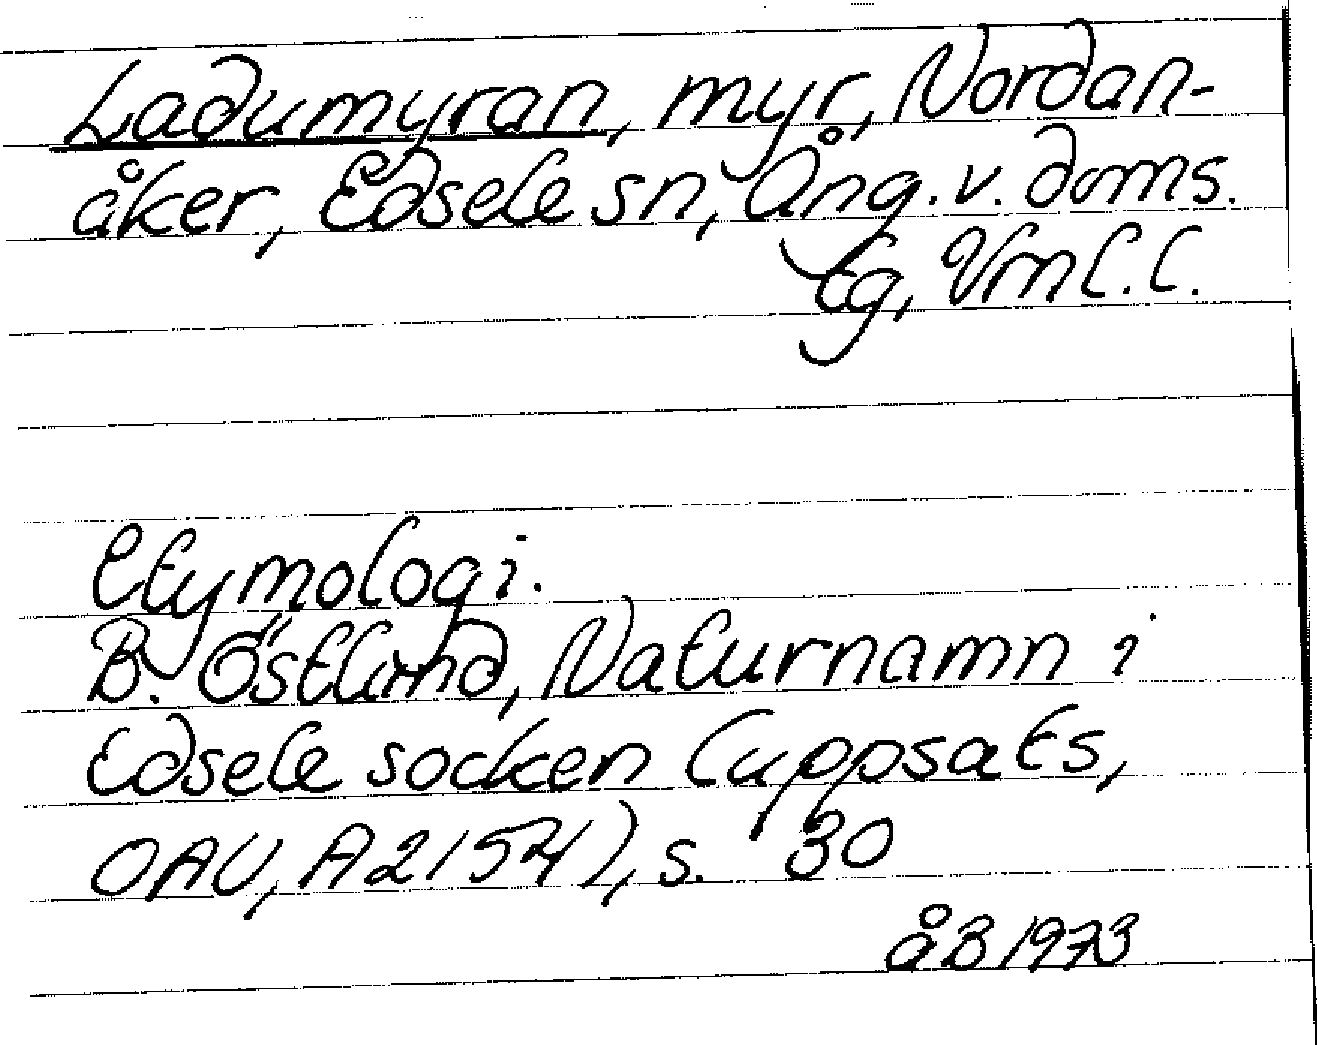 Ladumyran, myr, Nordan-
åker, Edsele sn, Ång. v. doms.
tg, Vrnl.l.
Etymologi.
B. Östlund, Naturnamn i
Edsele socken (uppsats,
OAU, A2154), s. 30
åB 1973